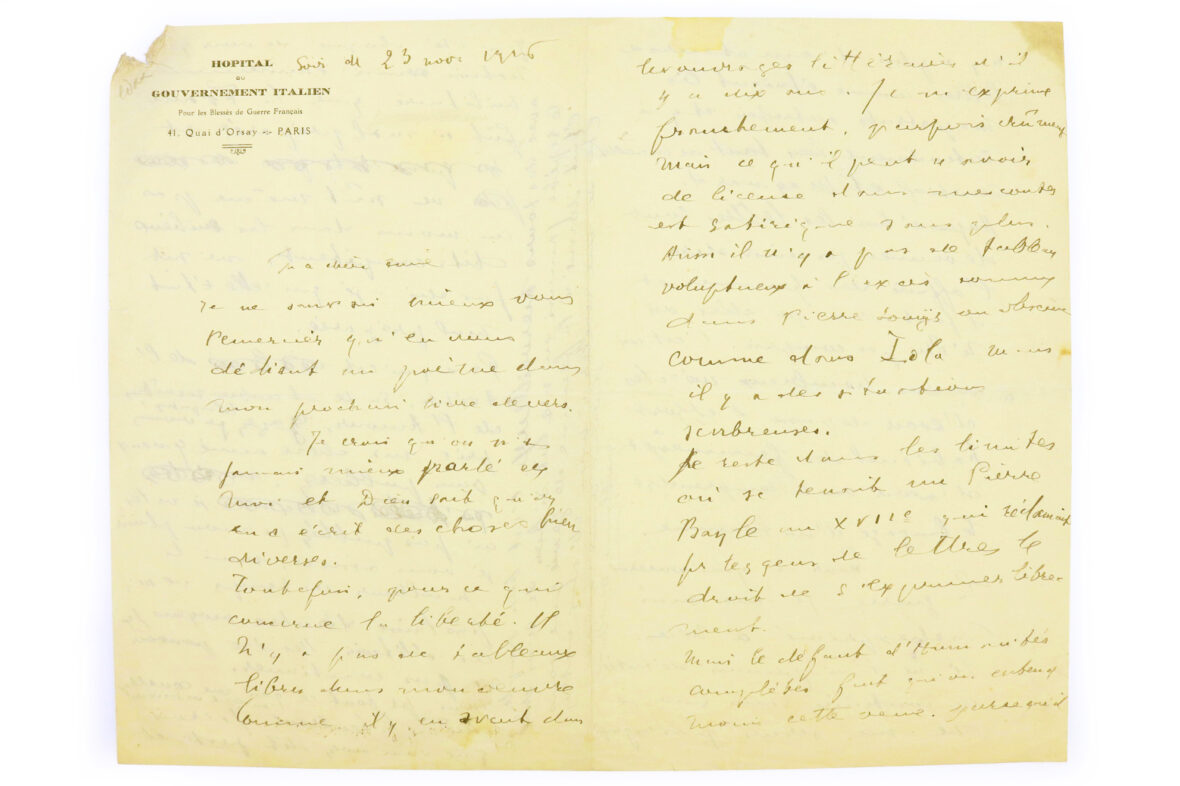 HOPITAL
DU
GOUVERNEMENT ITALIEN
Pour les Blessés de Guerre Français
41, Quai d'Orsay PARIS
23 nov. 1916
Ma chère amie
Je ne saurais mieux vous
remercier qu'en vous
dédiant un poème dans
mon prochain livre de vers.
Je crois qu'on n'a
jamais mieux parlé de
moi et Dieu sait qu'on
en a écrit des choses bien
diverses.
Toutefois, pour ce qui
concerne la liberté. Il
n'y a pas de tableaux
libres dans mon œuvre
comme il y en avait dans
les ouvrages littéraires d'il
y a dix ans. Je m'exprime
franchement, parfois crûment
mais ce qu'il peut y avoir
de license dans mes contes
est satirique sans plus.
Aussi il n'y a pas de tableau
voluptueux à l'excès comme
dans Pierre Louÿs ou obscène
comme dans Zola mais
il y a des situations
Je reste dans les limites
où se tenait un Pierre
Bayle au XVIIe qui réclamait
pr les gens de lettres le
droit de s'exprimer libre-
ment.
Mais le défaut d'Humanités
complètes fait qu'on entend
moins cette veine, puisqu'il